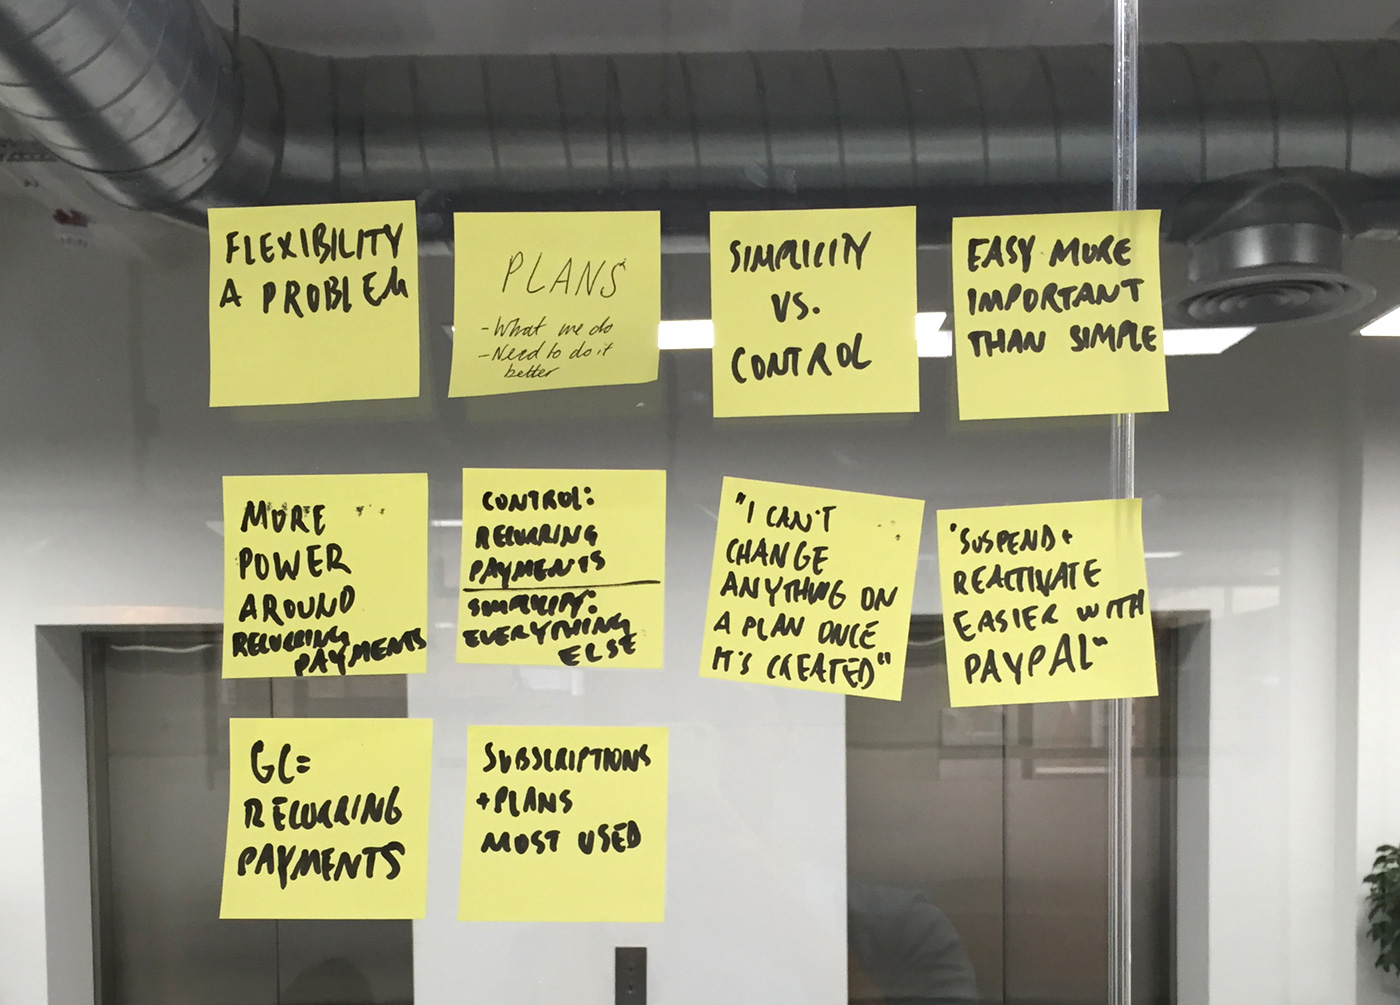 FLEXIBILITY
A PROBLEM
PLANS
-What we do
-Need to do it
better
SIMPLICITY
VS.
CONTROL
EASY MORE
IMPORTANT
THAN SIMPLE
MORE
POWER
AROUND
RECURRING
PAYMENTS
CONTROL:
RECURRING
PAYMENTS
SIMPLICITY:
EVERYTHING
ELSE
"I CAN'T
CHANGE
ANYTHING ON
A PLAN ONCE
IT'S CREATED"
"SUSPEND+
REACTIVATE
EASIER WITH
PAYPAL"
GC=
RECURRING
PAYMENTS
SUBSCRIPTIONS
+PLANS
MOST USED